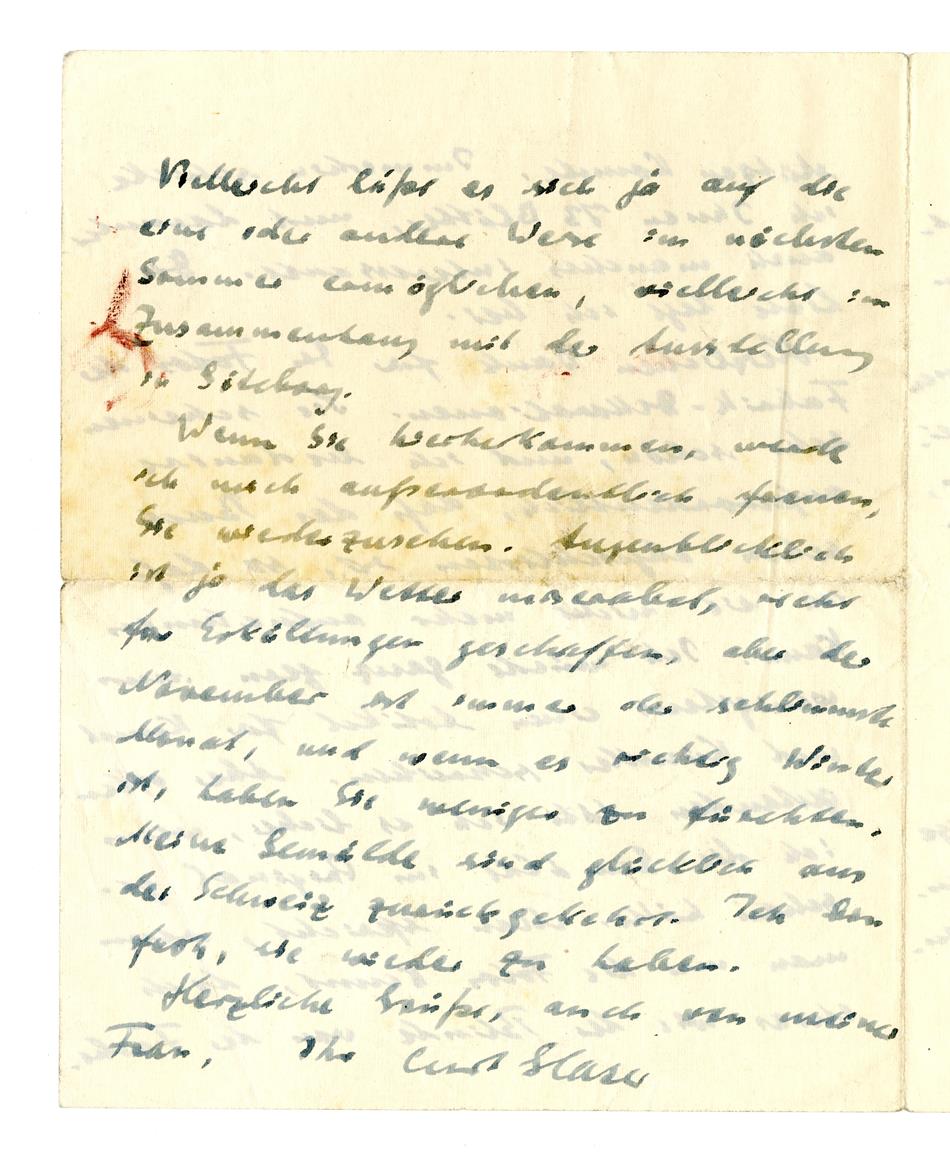 Vielleicht läßt es sich ja auf die
eine oder andere Weise im nächsten
Sommer ermöglichen, vielleicht im
Zusammenhang mit der Ausstellung
in
Wenn Sie hierherkommen, werde
ich mich außerordentlich freuen,
Sie wiederzusehen. Augenblicklich
ist ja das Wetter miserabel, recht
für Erkältungen geschaffen, aber der
November ist immer der schlimmste
Monat, und wenn es richtig Winter
ist, haben Sie weniger zu fürchten.
Meine Gemälde sind glücklich aus
der Schweiz zurückgekehrt. Ich bin
froh, sie wieder zu haben.
Herzliche Grüße, auch von meiner
Frau, Ihr Curt Glaser